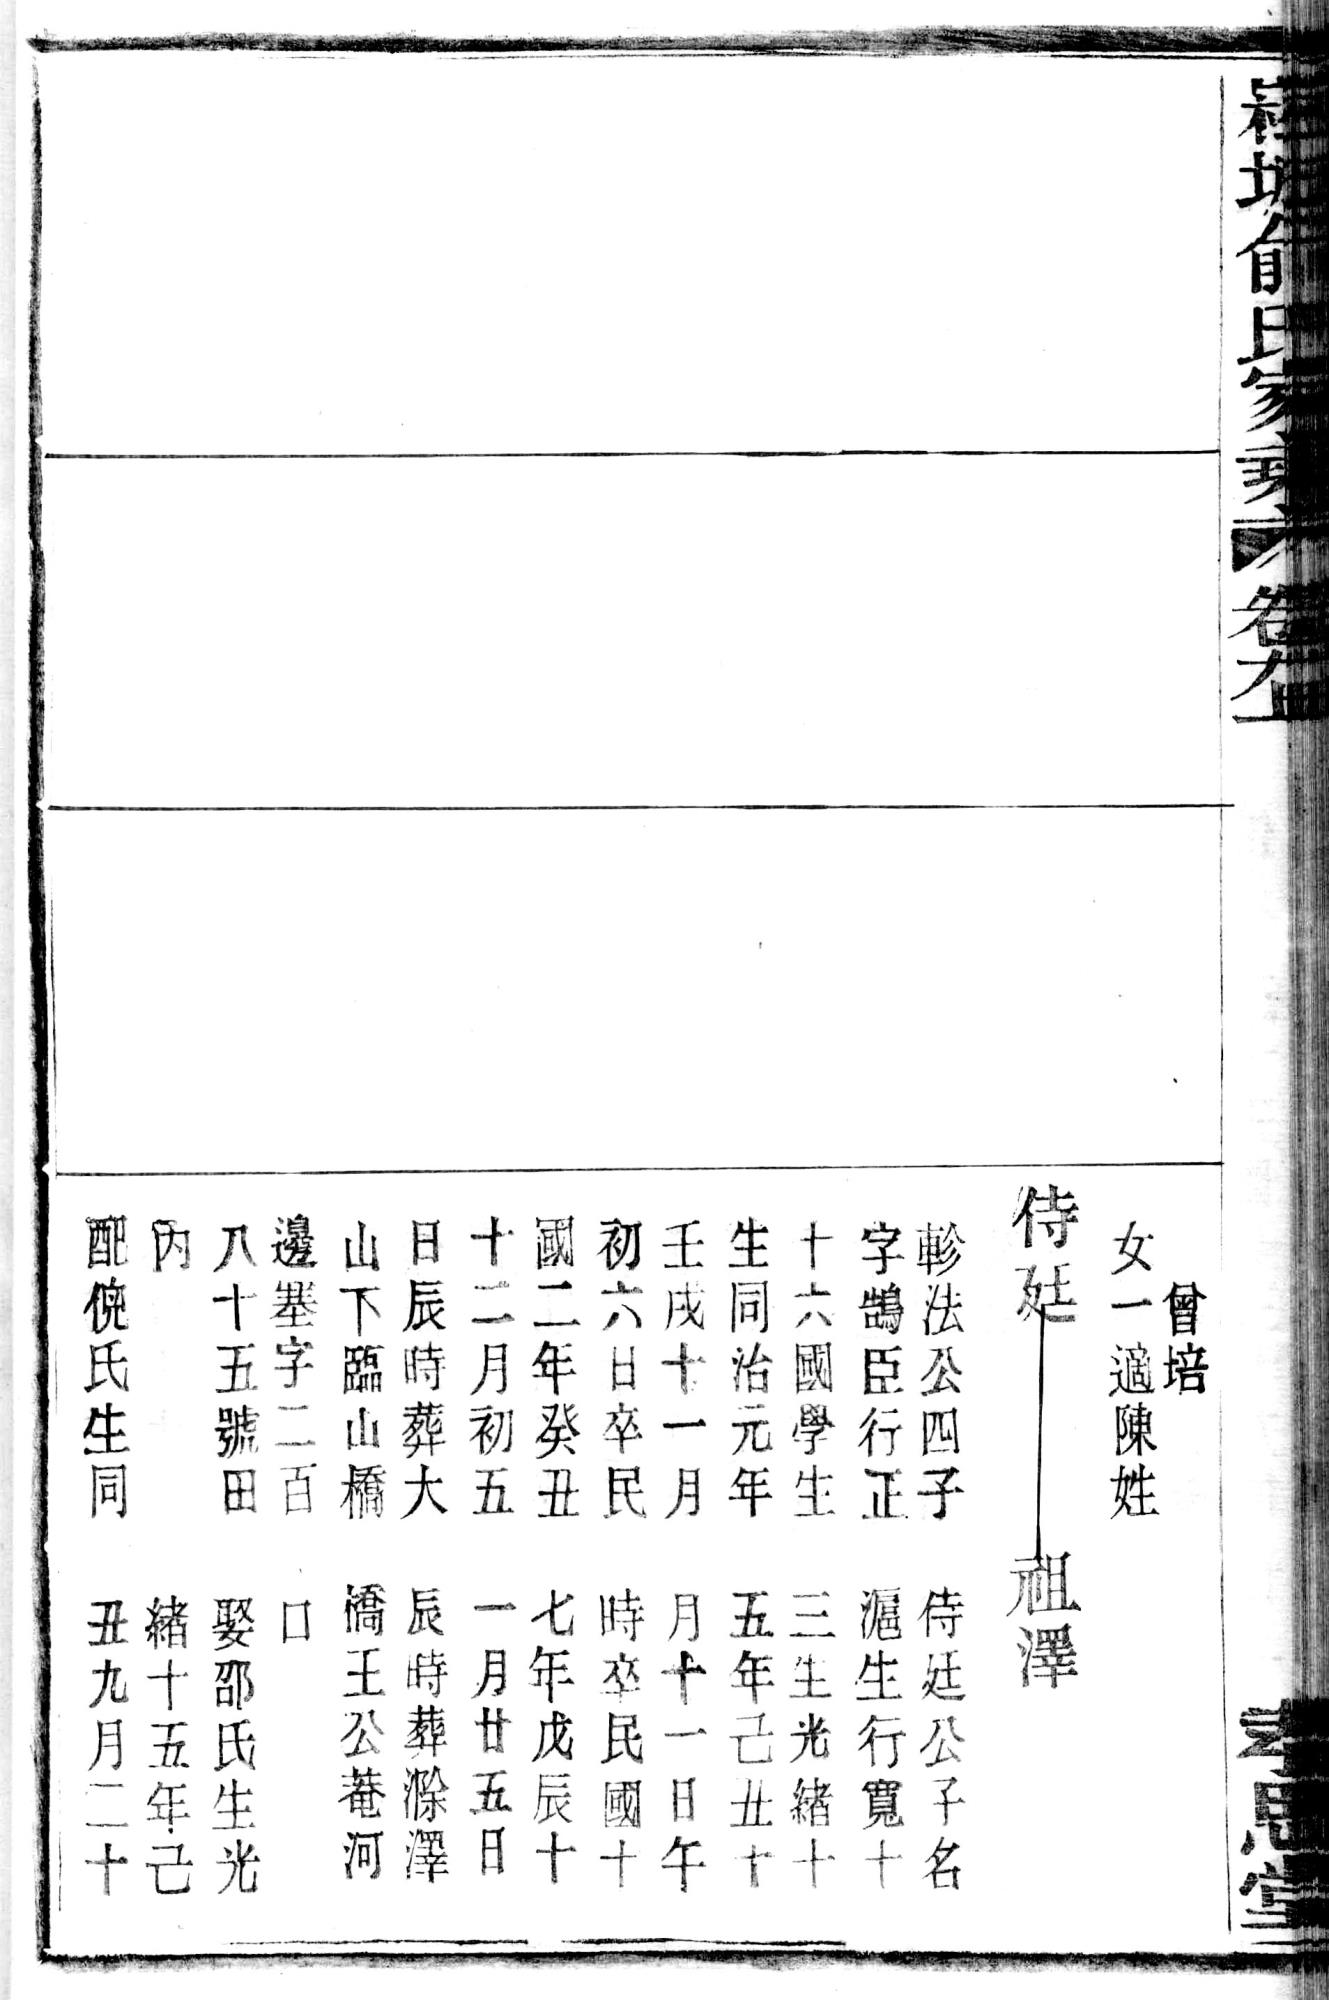 俞氏家乘
卷九上
孝思堂
曾培
女一適陳姓
侍廷
軫法公四子
字鵠臣行正
十六國學生
生同治元年
壬戌十一月
初六日卒民
國二年癸丑
十二月初五
日辰時葬大
山下臨山橋
邊基字二百
八十五號田
內
配倪氏生同
祖澤
侍廷公子名
滬生行寬十
三生光緒十
五年己丑十
月十一日午
時卒民國十
七年戊辰十
一月廿五日
辰時葬滁澤
橋王公菴河
口
娶邵氏生光
緒十五年己
丑九月二十